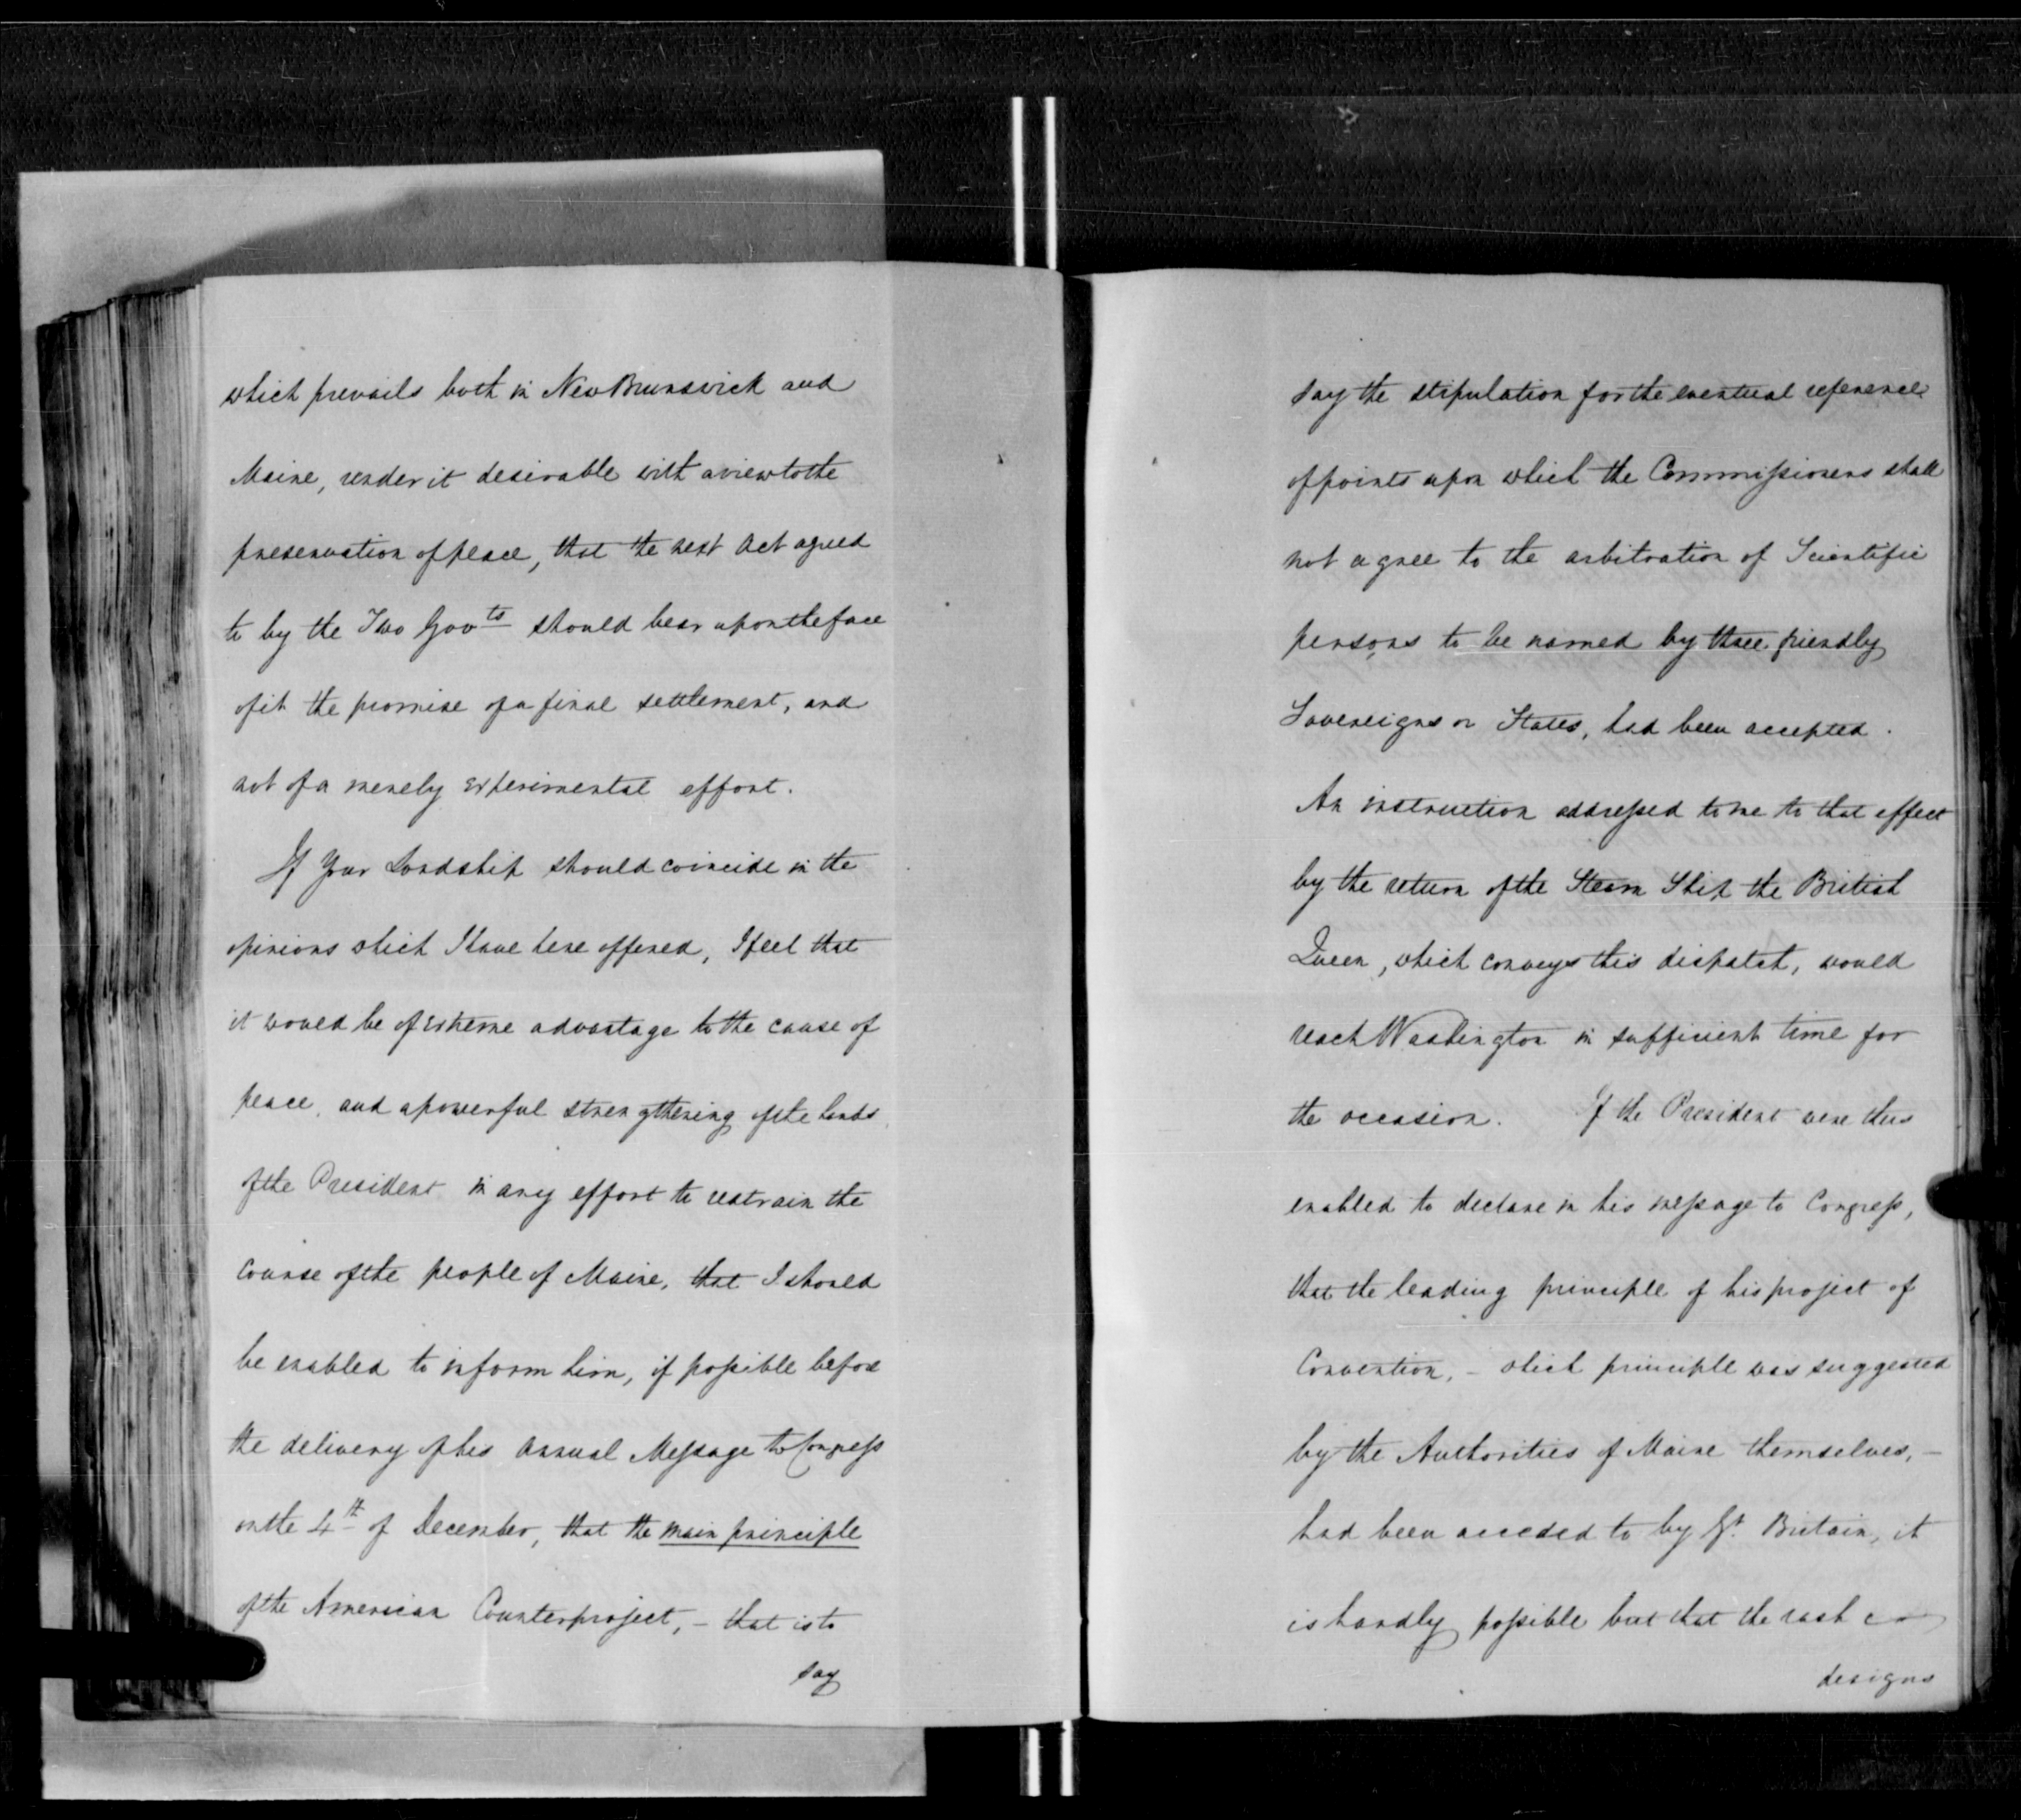 which prevails both in New Brunswick and
Maine, render it desirable with a view to the
preservation of peace, that the next Act agreed
to by the Two Govts should bear upon the face
of it the promise of a final settlement, and
not of a merely experimental effort.
If Your Lordship should coincide in the
opinions which I have here offered, I feel that
it would be of extreme advantage to the cause of
peace, and a powerful strengthening of the hands
of the President in any effort to restrain the
course of the people of Maine, that I should
be enabled to inform him, if possible before
the delivery of his Annual Message to Congress
on the 4th of December, that the main principle
of the American Counterproject, - that is to
say
say the stipulation for the eventual reference
of points upon which the Commissioners shall
not agree to the arbitration of Scientific
persons to be named by three friendly
Sovereigns or States, had been accepted.
An instruction addressed to me to that effect
by the return of the Steam Ship the British
Queen, which conveys this dispatch, would
reach Washington in sufficient time for
the occasion. If the President were thus
enabled to declare in his message to Congress,
that the leading principle of his project of
Convention, - which principle was suggested
by the Authorities of Maine themselves, -
had been acceded to by Gt. Britain, it
is hardly possible but that the rash
designs